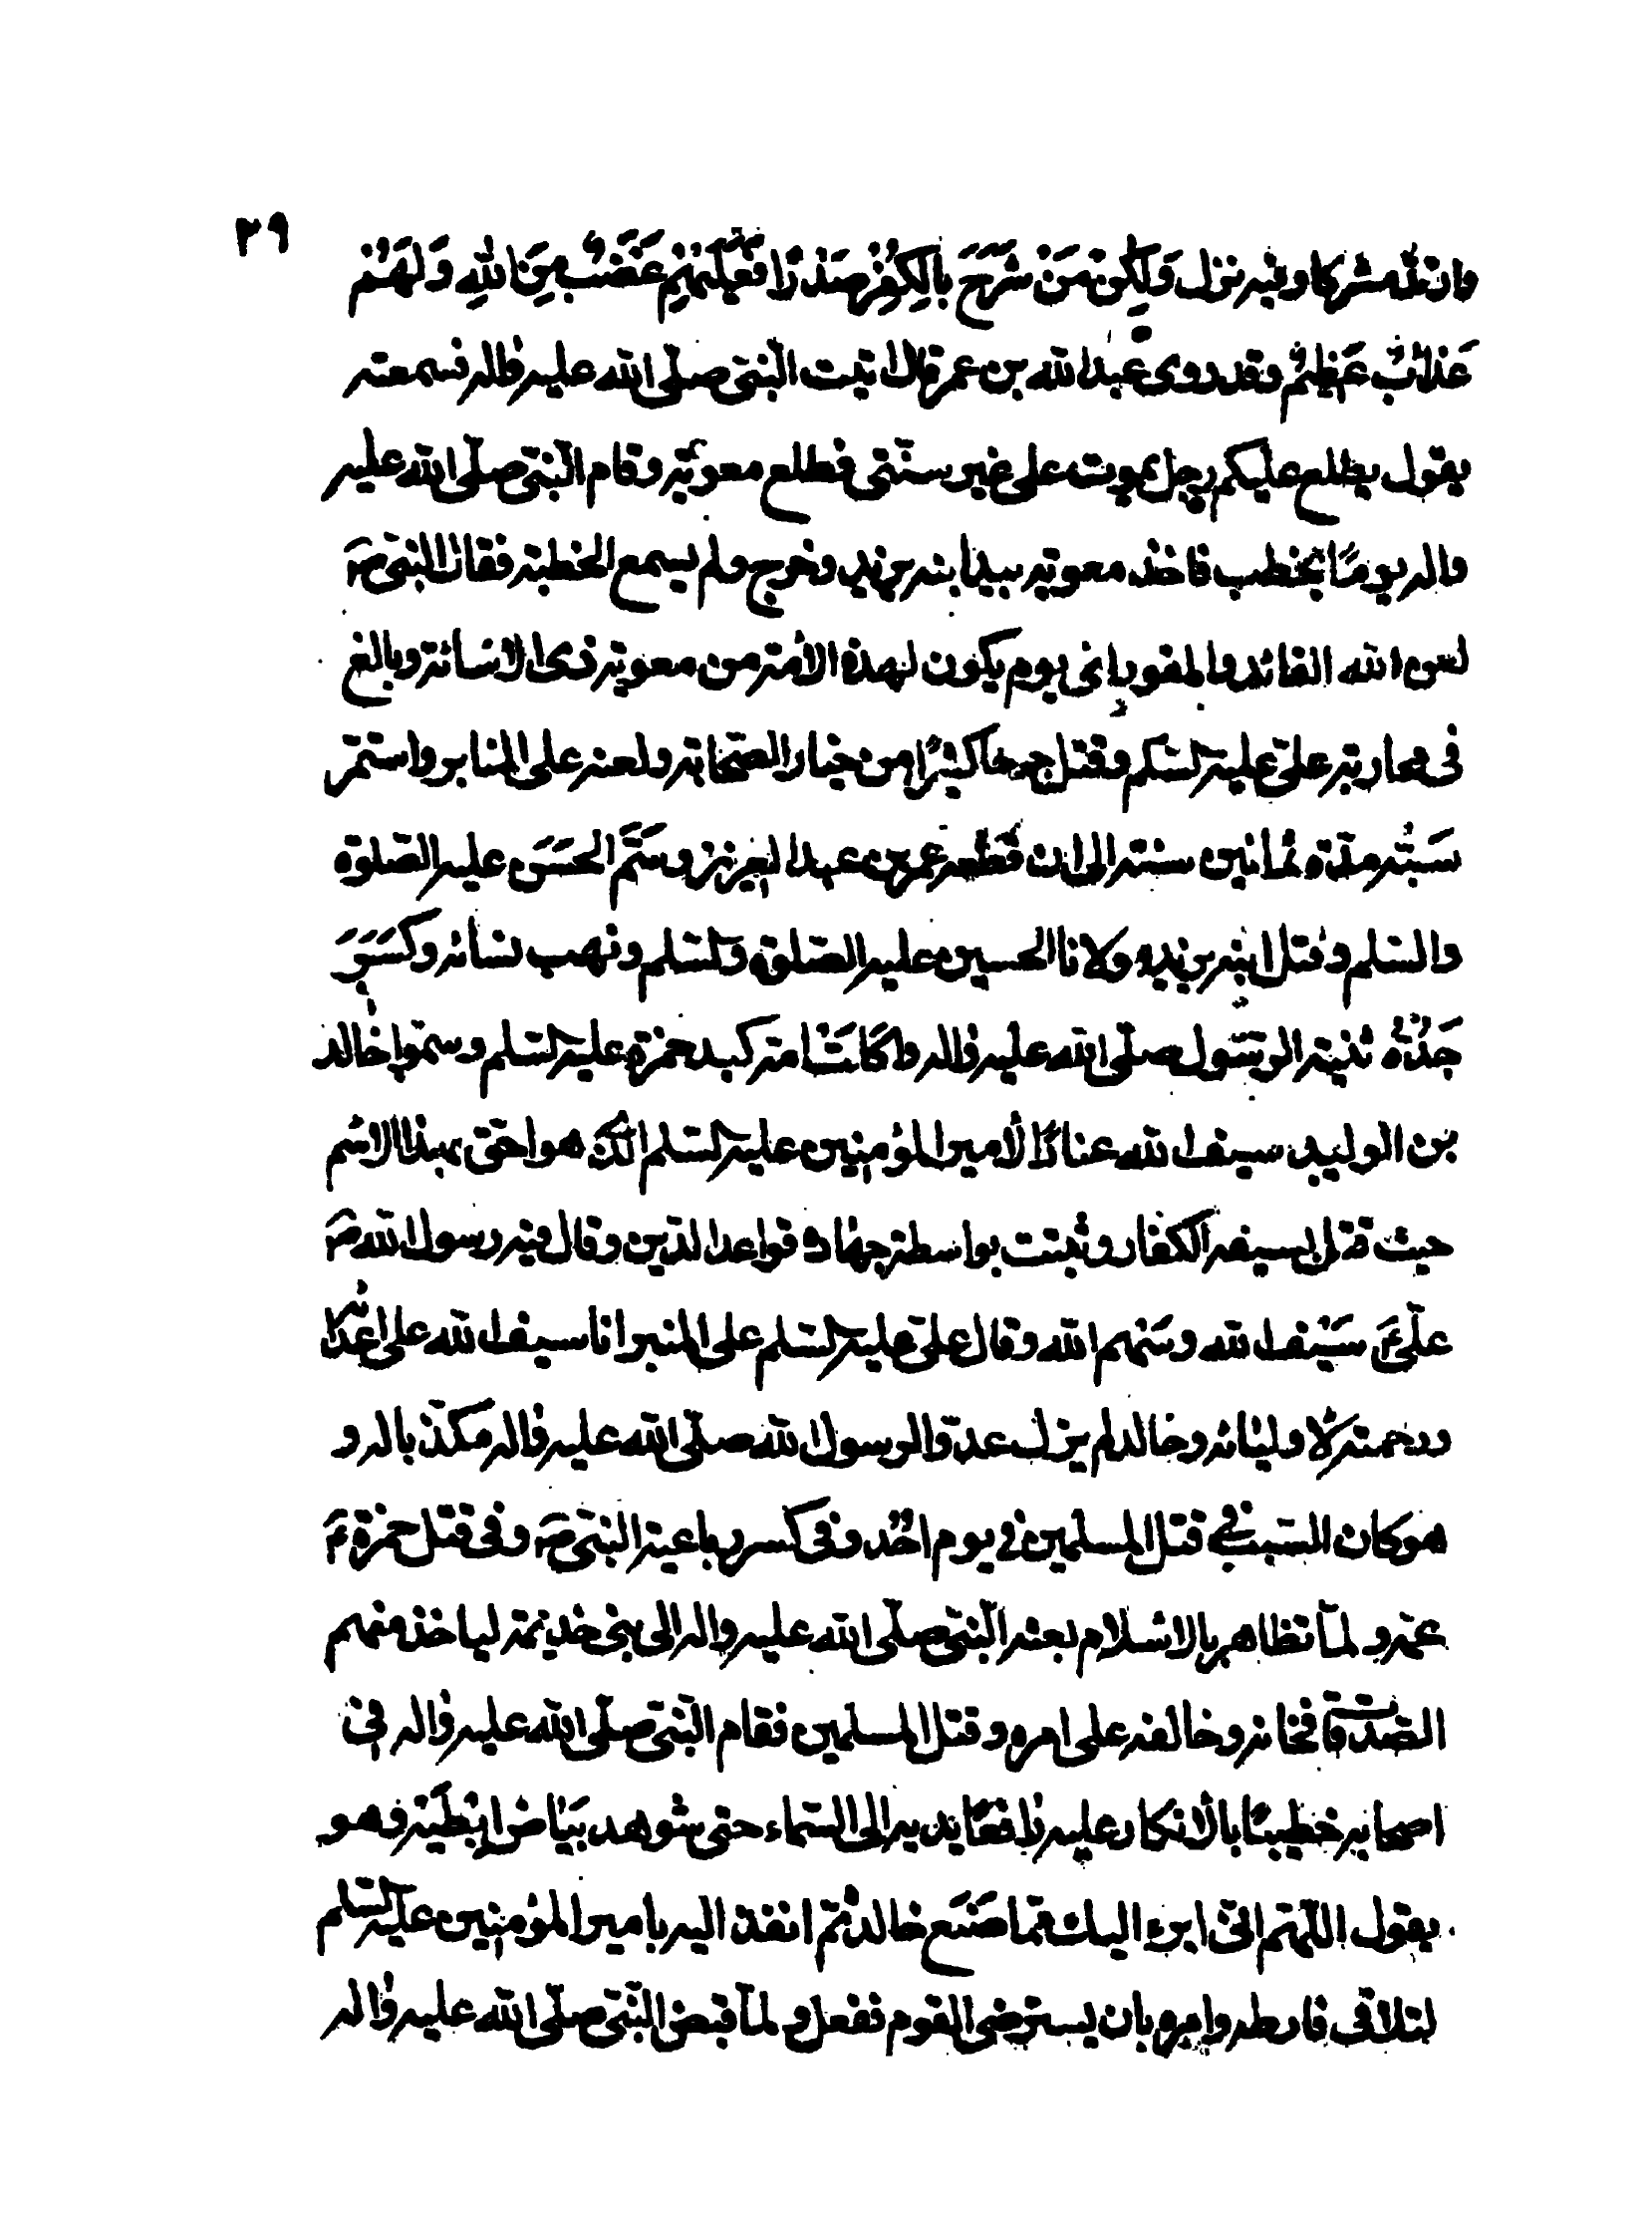 ٢٩
وارتد مشركا وفيه نزل وَلٰكِنْ مَنْ شَرَحَ بِالْكُفْرِ صَدْرًا فَعَلَيْهِمْ غَضَبٌ مِنَ اللهِ وَلَهُمْ
عَذابٌ عَظيمٌ وقد روى عبد الله بن عمر قال اتيت النبي صلّى الله عليه واله فسمعته
يقول يطلع عليكم رجل يموت على غير سنّتي فطلع معوية وقام النبي صلّى الله عليه
واله يومًا يخطب فاخذ معوية بيد ابنه يزيد وخرج ولم يسمع الخطبة فقال النبي ص
لعن الله القائد والمقود اى يوم يكون لهذه الامة من معوية ذى الاسائة وبالغ
فى محاربة علىّ عليه السلم وقتل جمعا كثيرًا من خيار الصّحابة ولعنه على المنابر واستمرّ
سَبّه مدّة ثمانين سنة الى ان قطعه عمر بن عبد العزيز وسَمَّ الحسَن عليه الصّلوة
والسّلم وقتل ابنه يزيد مولانا الحسين عليه الصّلوة والسّلم ونهب نسائه وكسَرَ
جَدّه ثنية الرسول صلّى الله عليه واله واكلت امّه كبد حمزة عليه السّلم وسمّوا خالد
بن الوليد سيف الله عنادًا لأمير المؤمنين عليه السّلم الذى هو احقّ بهذا الاسم
حيث قتل بسيفه الكفّار وثبتت بواسطة جهاده قواعد الدّين وقال فيه رسول الله ص
علىّ ع سَيْف الله وسَهم الله وقال علىّ عليه السّلم على المنبر انا سيف الله على اعدائه
ورحمته لأوليائه وخالد لم يزل عدوّا لرسول الله صلّى الله عليه واله مكذّبا له و
هو كان السّبب في قتل المسلمين في يوم احُد وفى كسر رباعية النبىّ ص وفى قتل حمزة ع
عمّه ولمّا تظاهر بالاسلام بعثه النّبي صلّى الله عليه واله الى بنى خذيمة لياخذ منهم
الصّدقات فخانه وخالفه على امره وقتل المسلمين فقام النّبي صلّى الله عليه واله فى
اصحابه خطيبًا بالأنكار عليه رافعًا يديه الى السّماء حتى شوهد بَيَاض ابْطَيْه وهو
يقول اللّهمّ انّى ابرء اليك ممّا صَنَع خالد ثمّ انفذ اليه بامير المؤمنين عليه السّلم
لتلافى فارطه وامره بان يسترضى القوم ففعل ولمّا قبض النّبي صلّى الله عليه واله